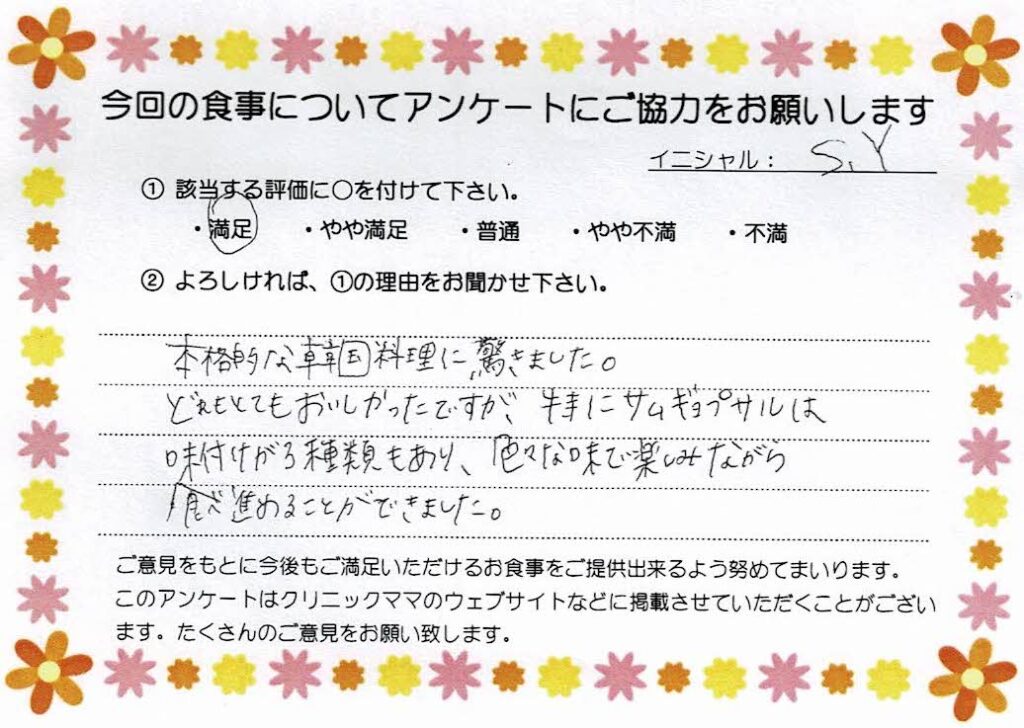 今回の食事についてアンケートにご協力をお願いします
イニシャル： S.Y
① 該当する評価に〇を付けて下さい。
・満足 ・やや満足 ・普通 ・やや不満 ・不満
② よろしければ、①の理由をお聞かせ下さい。
本格的な韓国料理に驚きました。
どれもとてもおいしかったですが、特にサムギョプサルは
味付けが3種類もあり、色々な味で楽しみながら
食べ進めることができました。
ご意見をもとに今後もご満足いただけるお食事をご提供出来るよう努めてまいります。
このアンケートはクリニックママのウェブサイトなどに掲載させていただくことがござい
ます。たくさんのご意見をお願い致します。